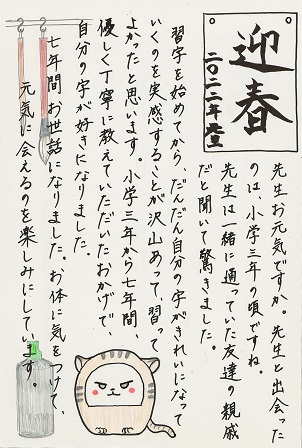 迎春
二〇二二年元旦
先生お元気ですか。先生と出会った
のは、小学三年の頃ですね。
先生は一緒に通っていた友達の親戚
だと聞いて驚きました。
習字を始めてから、だんだん自分の字がきれいになって
いくのを実感することが沢山あって、習って
よかったと思います。小学三年から七年間、
優しく丁寧に教えていただいたおかげで
自分の字が好きになりました。
七年間お世話になりました。お体に気をつけて、
元気に会えるのを楽しみにしています。